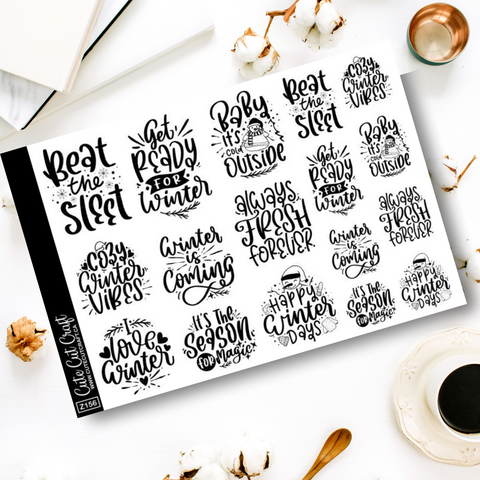 Beat
the
Sleet
Get
Ready
for
Winter
Baby
it's
cold
Outside
Beat
the
Sleet
Cozy
Winter
Vibes
Cozy
Winter
Vibes
Winter
is
Coming
Always
Fresh
Forever
Get
Ready
for
Winter
Baby
it's
cold
Outside
I
love
Winter
It's the
Season
for Magic
Happy
Winter
Days
Winter
is
Coming
Always
Fresh
Forever
It's the
Season
for Magic
Happy
Winter
Days
Cute Cut Craft
WWW.CUTECUTCRAFT.CA
Z156